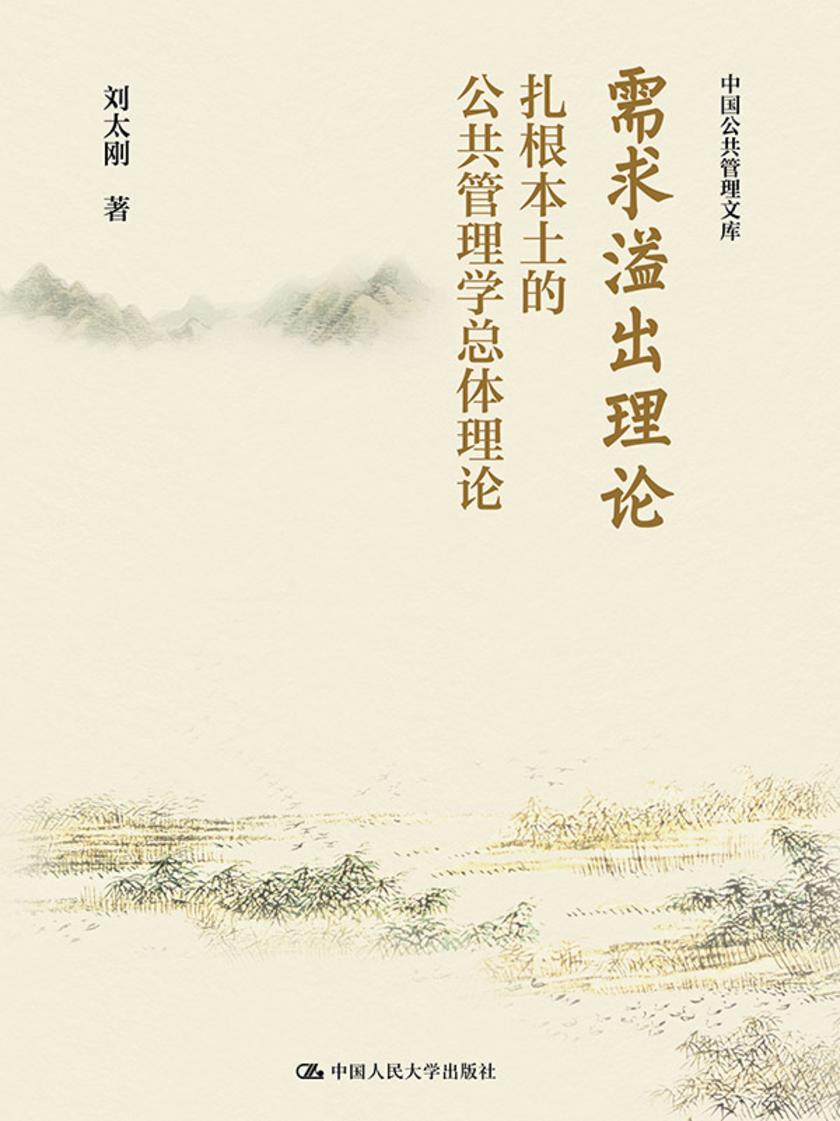 中国公共管理文库
需求溢出理论
扎根本土的
公共管理学总体理论
刘太刚 著
中国人民大学出版社